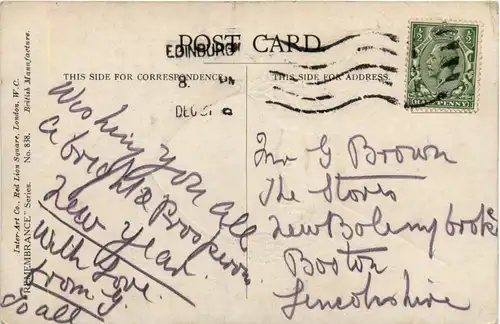 POST CARD
EDINBURG
8. PM
DEC 31
THIS SIDE FOR CORRESPONDENCE.
THIS SIDE FOR ADDRESS.
Inter-Art Co., Red Lion Square, London, W.C.
"REMEMBRANCE" Series. No. 838. British Manufacture.
Wishing you all
a bright & Prosperous
New Year.
With Love.
from G.
to all
Mr G Brown
The Stores
New Bolingbroke
Boston
Lincolnshire